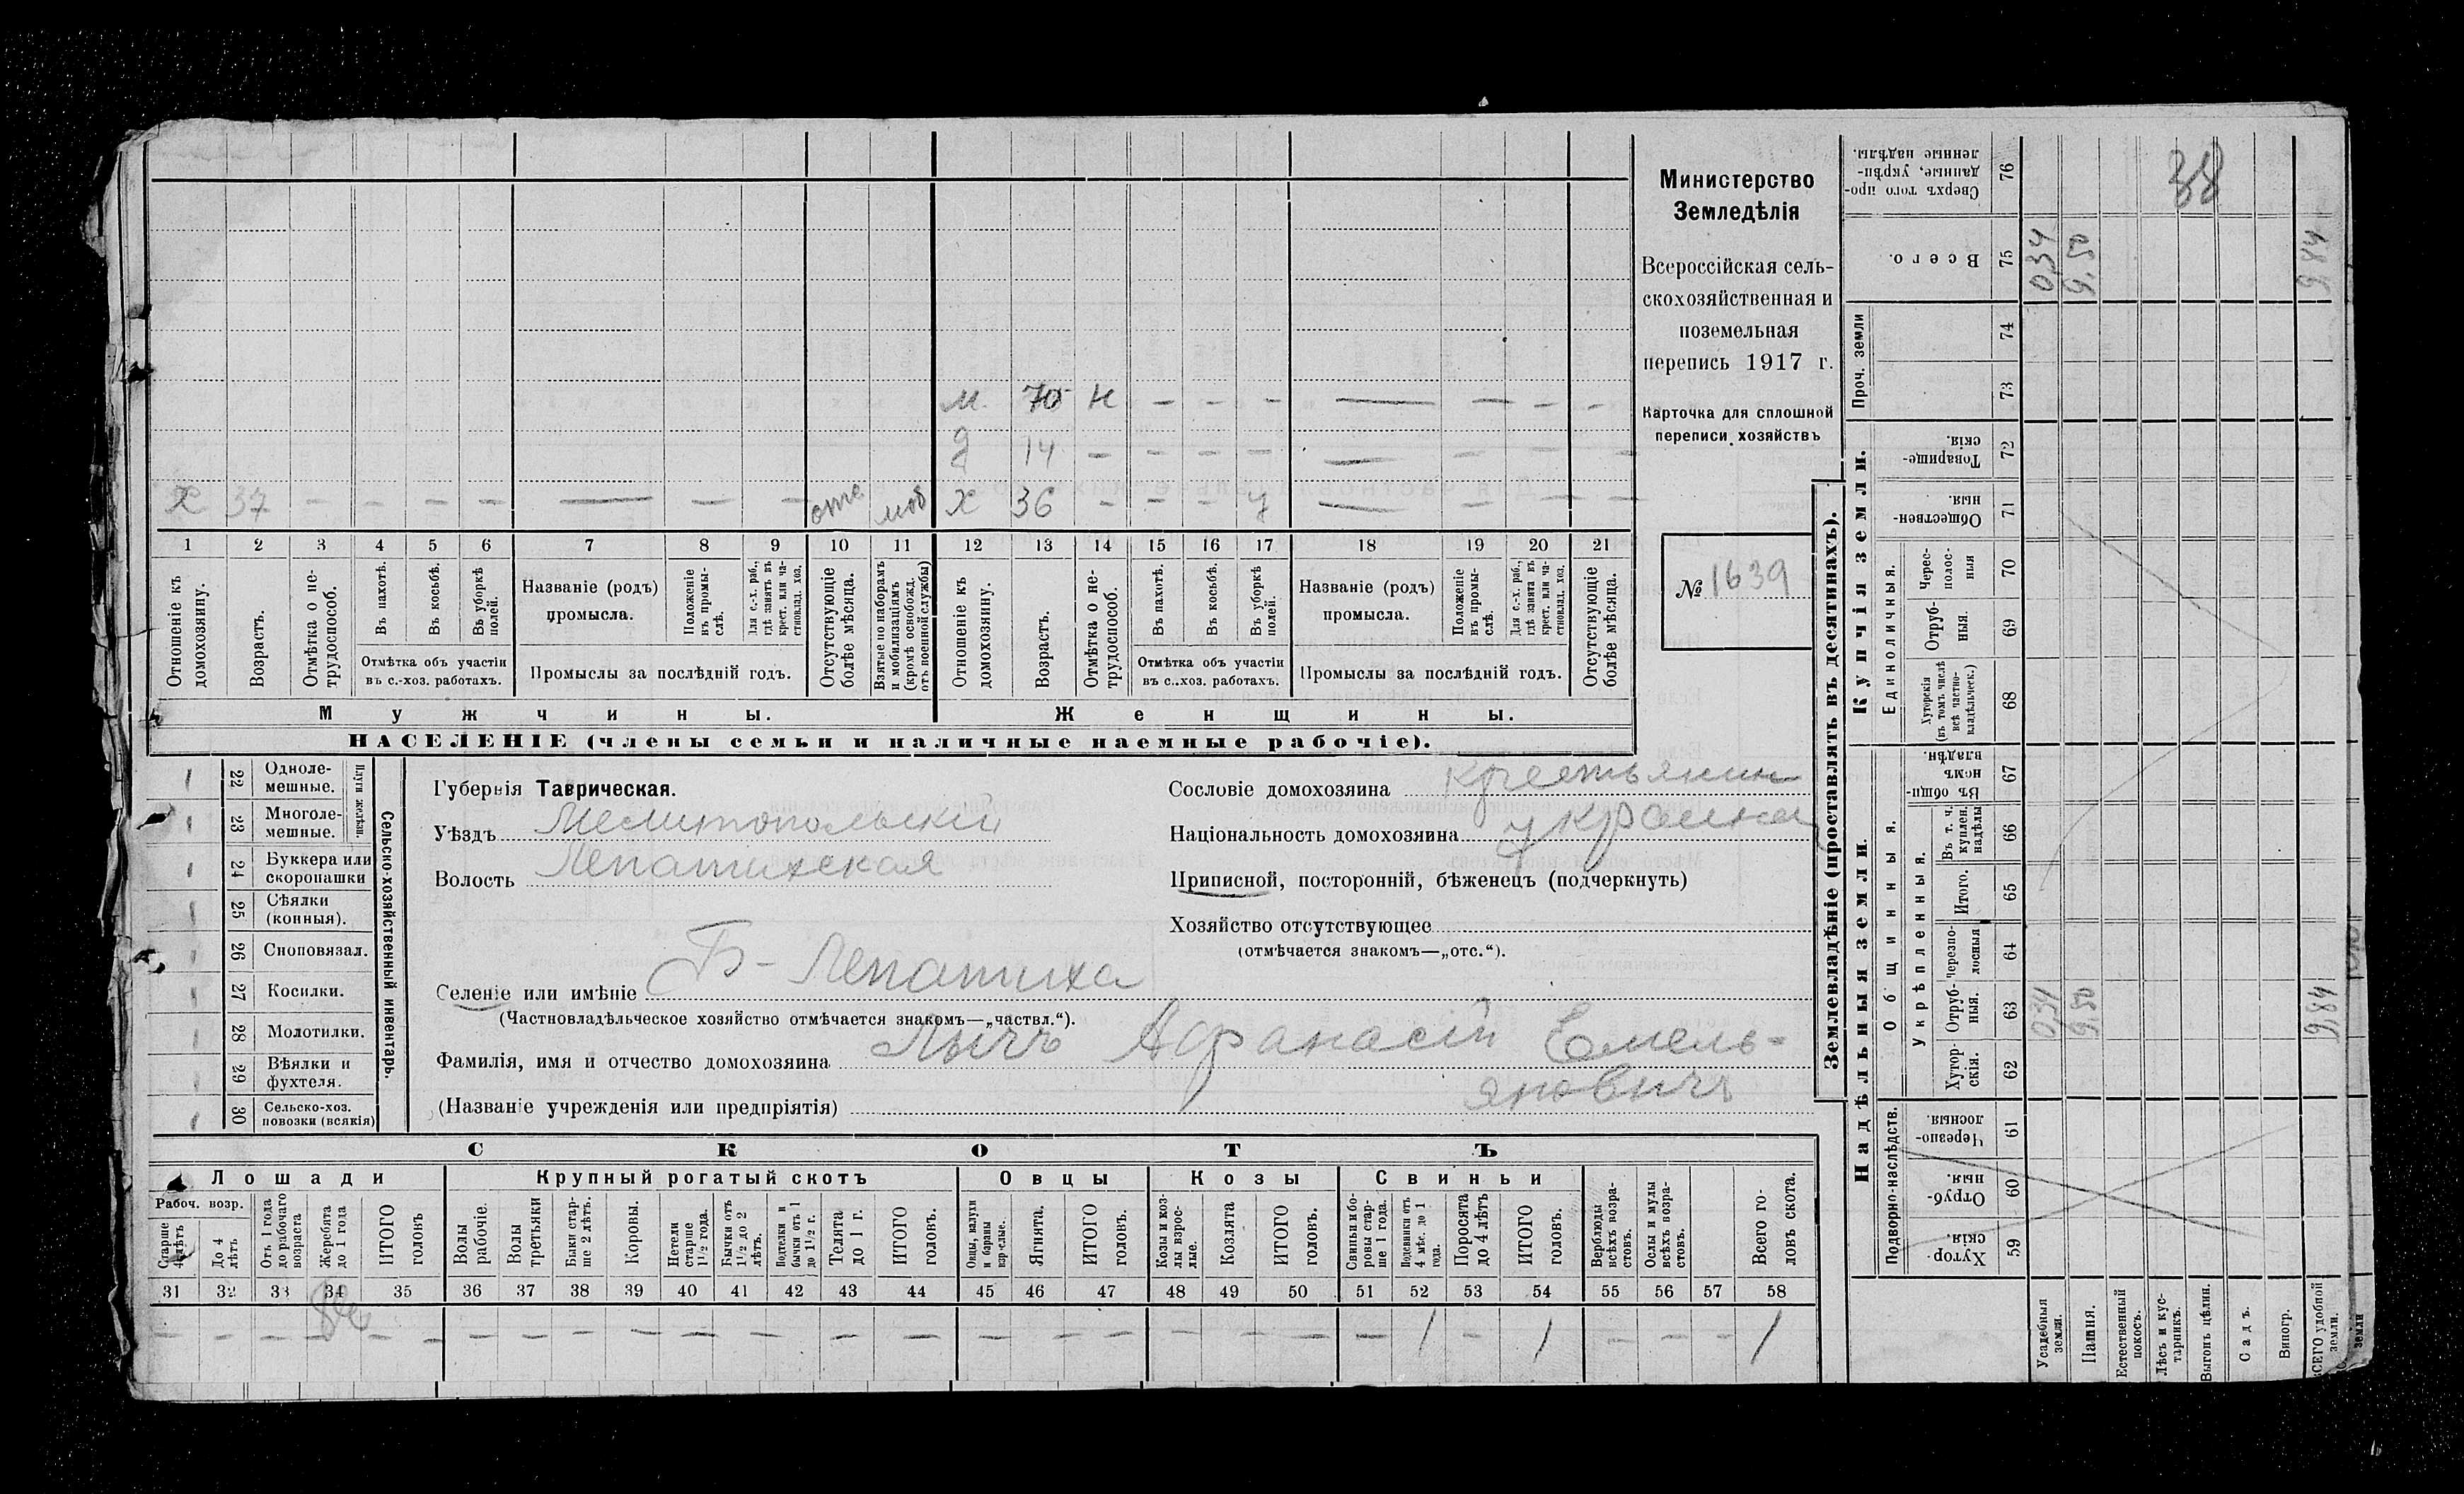 м. 70 н - - - — - - -
д 14 - - - - — - - -
х 37 - - - - — - - отс. моб х 36 - - - у — - - -
1 2 3 4 5 6 7 8 9 10 11 12 13 14 15 16 17 18 19 20 21
Отношеніе къ домохозяину.
Возрастъ.
Отмѣтка о нетрудоспособ.
Въ пахотѣ.
Въ косьбѣ.
Въ уборкѣ полей.
Отмѣтка объ участіи
въ с.-хоз. работахъ.
Названіе (родъ)
промысла.
Положеніе въ промыслѣ.
Для с.-х. раб., гдѣ занятъ въ крест. или частновлад. хоз.
Промыслы за послѣдній годъ.
Отсутствующіе болѣе мѣсяца.
Взятые по наборамъ и мобилизаціямъ (кромѣ освобожд. отъ военной службы)
Отношеніе къ домохозяину.
Возрастъ.
Отмѣтка о нетрудоспособ.
Въ пахотѣ.
Въ косьбѣ.
Въ уборкѣ полей.
Отмѣтка объ участіи
въ с..хоз. работахъ.
Названіе (родъ)
промысла.
Положеніе въ промыслѣ.
Для с.-х. раб., гдѣ занята въ крест. или частновлад. хоз.
Промыслы за послѣдній годъ.
Отсутствующіе болѣе мѣсяца.
Мужчины.
Женщины.
НАСЕЛЕНІЕ (члены семьи и наличные наемные рабочіе).
Министерство
Земледѣлія
Всероссійская сель-
скохозяйственная и
поземельная
перепись 1917 г.
Карточка для сплошной
переписи хозяйствъ
№ 1639
Сельско-хозяйственный инвентарь.
Плуги желѣзн.
22 Одноле-
мешные.
23 Многоле-
мешные.
24 Буккера или
скоропашки
25 Сѣялки
(конныя).
26 Сноповязал.
27 Косилки.
28 Молотилки.
29 Вѣялки и
фухтеля.
30 Сельско-хоз.
повозки (всякія)
Губернія Таврическая.
Уѣздъ Мелитопольскій
Волость Лепатихская
Селеніе или имѣніе Б-Лепатиха
(Частновладѣльческое хозяйство отмѣчается знакомъ—„частвл.“).
Фамилія, имя и отчество домохозяина Лычъ Афанасій Емель-
яновичъ
(Названіе учрежденія или предпріятія)
Сословіе домохозяина крестьянин
Національность домохозяина украинец
Приписной, посторонній, бѣженецъ (подчеркнуть)
Хозяйство отсутствующее
(отмѣчается знакомъ—„отс.“).
СКОТЪ
Лошади
Рабоч. возр.
Старше 4 лѣтъ
До 4 лѣтъ
Отъ 1 года до рабочаго возраста
Жеребята до 1 года
ИТОГО головъ
Крупный рогатый скотъ
Волы рабочіе.
Волы третьяки
Быки старше 2 лѣтъ.
Коровы.
Нетели старше 1½ года.
Бычки отъ 1½ до 2 лѣтъ.
Подтелки и бычки отъ 1 до 1½ г.
Телята до 1 г.
ИТОГО головъ.
Овцы
Овцы, валухи и бараны взрослые.
Ягнята.
ИТОГО головъ.
Козы
Козы и козлы взрослые.
Козлята
ИТОГО головъ.
Свиньи
Свиньи и боровы старше 1 года.
Подсвинки отъ 4 мѣс. до 1 года.
Поросята до 4 лѣтъ
ИТОГО головъ.
Верблюды всѣхъ возрастовъ.
Ослы и мулы всѣхъ возрастовъ.
Всего головъ скота.
31 32 33 34 35 36 37 38 39 40 41 42 43 44 45 46 47 48 49 50 51 52 53 54 55 56 57 58
- - - - - - - - - - - - - - - - - - - - - 1 - 1 - - - 1
Землевладѣніе (проставлять въ десятинахъ).
Купчія земли.
Надѣльныя земли.
Сверхъ того проданные, укрѣпленные надѣлы. 76 38
Всего. 75 034 9,50 9 84
Проч. земли 74
73
Товарищескія. 72
Общественныя. 71
Единоличныя.
Чересполосныя 70
Отрубныя. 69
Хуторскія (въ томъ числѣ всѣ частновладѣльческ.) 68
Общинныя.
Въ общинномъ владѣн. 67
Укрѣпленныя.
Въ т. ч. куплен. надѣлы 66
Итого. 65
Черезполосныя 64
Отрубныя. 63 034 9,50 9,84
Хуторскія. 62
Подворно-наслѣдств.
Черезполосныя 61
Отрубныя. 60
Хуторскія. 59
Усадебныя земли.
Пашня.
Естественный покосъ.
Лѣсъ и кустарникъ.
Выгонъ цѣлин.
Садъ.
Виногр.
ВСЕГО удобной земли.
земли